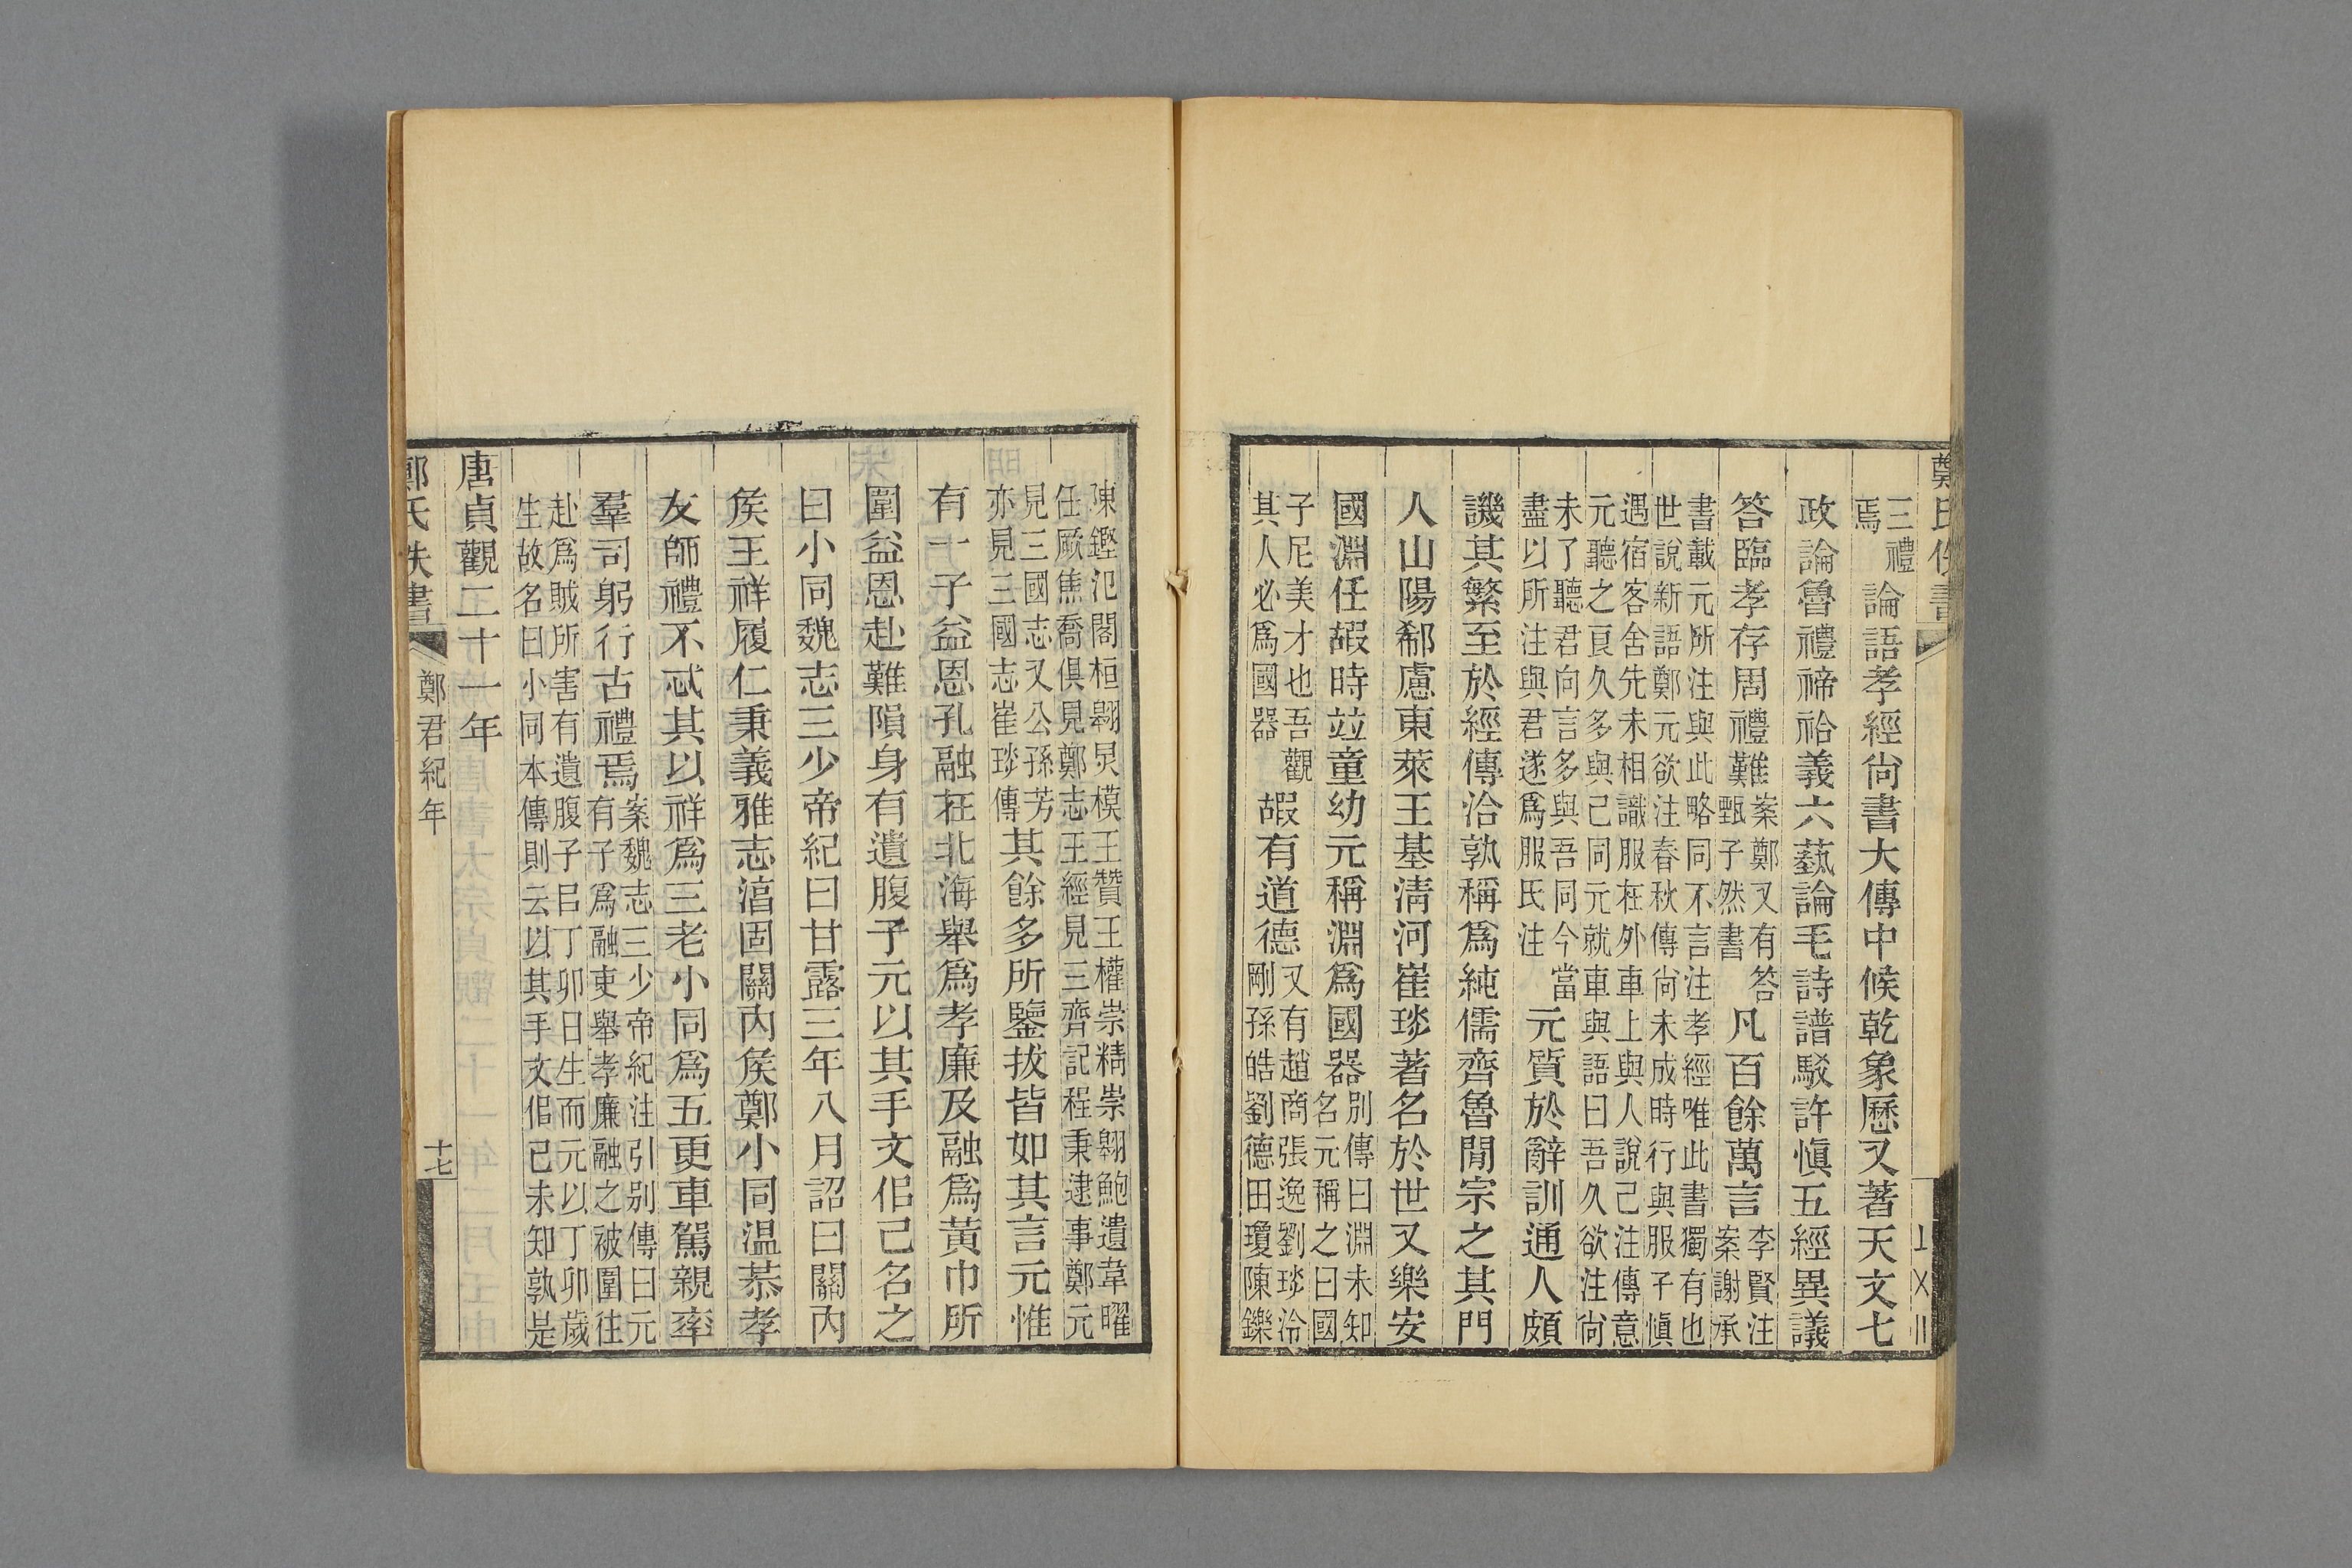 鄭氏佚書
三禮
焉
論語孝經尙書大傳中候乾象厯又著天文七
政論魯禮禘祫義六藝論毛詩譜駁許愼五經異議
答臨孝存周禮難
案鄭又有答
甄子然書
凡百餘萬言
李賢注
案謝承
書載元所注與此略同不言注孝經唯此書獨有也
世說新語鄭元欲注春秋傳尙未成時行與服子愼
遇宿客舍先未相識服在外車上與人說己注傳意
元聽之良久多與己同元就車與語曰吾久欲注尙
未了聽君向言多與吾同今當
盡以所注與君遂爲服氏注
元質於辭訓通人頗
譏其繁至於經傳洽孰稱爲純儒齊魯閒宗之其門
人山陽郗慮東萊王基淸河崔琰著名於世又樂安
國淵任嘏時竝童幼元稱淵爲國器
別傳曰淵未知
名元稱之曰國
子尼美才也吾觀
其人必爲國器
嘏有道德
又有趙商張逸劉琰泠
剛孫皓劉德田瓊陳鑠
陳鏗氾閣桓翱炅模王贊王權崇精崇翱鮑遺韋曜
任厥焦喬俱見鄭志王經見三齊記程秉逮事鄭元
見三國志又公孫芳
亦見三國志崔琰傳
其餘多所鑒拔皆如其言元惟
有一子益恩孔融在北海舉爲孝廉及融爲黃巾所
圍益恩赴難隕身有遺腹子元以其手文佀己名之
曰小同魏志三少帝紀曰甘露三年八月詔曰關內
矦王祥履仁秉義雅志湻固關內矦鄭小同温恭孝
友師禮不忒其以祥爲三老小同爲五更車駕親率
羣司躬行古禮焉
案魏志三少帝紀注引別傳曰元
有子爲融吏舉孝廉融之被圍往
赴爲賊所害有遺腹子㠯丁卯日生而元以丁卯歲
生故名曰小同本傳則云以其手文佀己未知孰是
唐貞觀二十一年
鄭氏佚書
鄭君紀年
十七